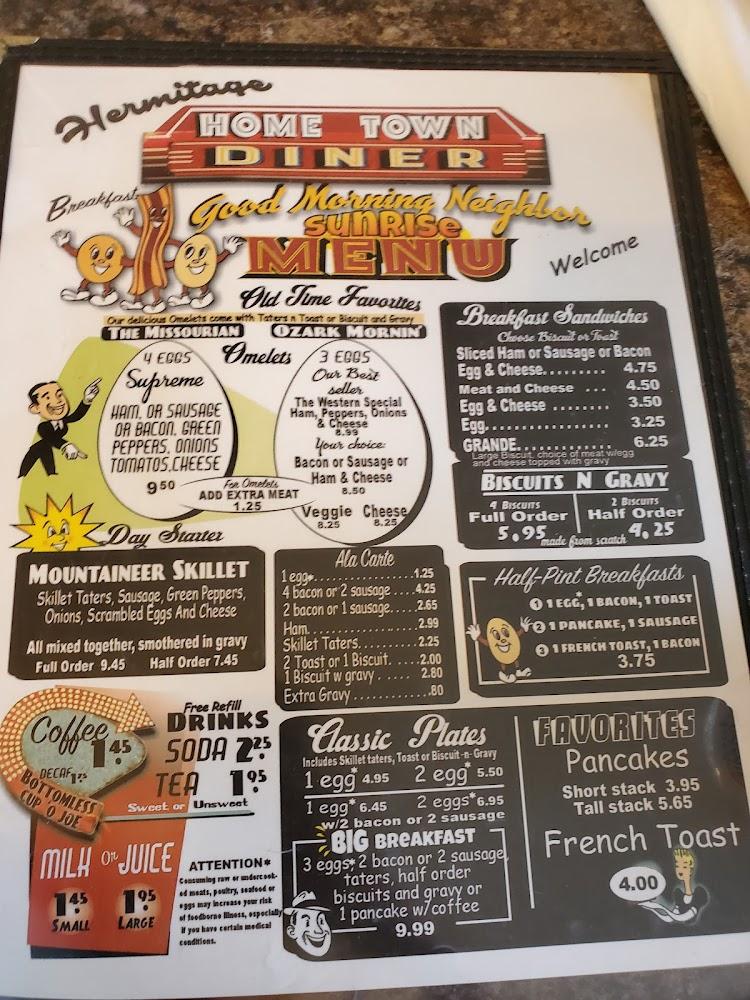 Hermitage
HOME TOWN
DINER
Breakfast
Good Morning Neighbor
SUNRISE
MENU
Welcome
Old Time Favorites
Our delicious Omelets come with Taters n Toast or Biscuit and Gravy
THE MISSOURIAN
OZARK MORNIN'
Omelets
4 EGGS
Supreme
HAM, OR SAUSAGE
OR BACON, GREEN
PEPPERS, ONIONS
TOMATOS, CHEESE
9 50
3 EGGS
Our Best
seller
The Western Special
Ham, Peppers, Onions
& Cheese
8.99
Your choice:
Bacon or Sausage or
Ham & Cheese
8.50
Veggie Cheese
8.25 8.25
For Omelets
ADD EXTRA MEAT
1.25
Breakfast Sandwiches
Choose Biscuit or Toast
Sliced Ham or Sausage or Bacon
Egg & Cheese......... 4.75
Meat and Cheese ... 4.50
Egg & Cheese ........ 3.50
Egg................. 3.25
GRANDE............... 6.25
Large Biscuit, choice of meat w/egg
and cheese topped with gravy
BISCUITS N GRAVY
4 BISCUITS
Full Order
5.95
2 BISCUITS
Half Order
4.25
made from scratch
Day Starter
MOUNTAINEER SKILLET
Skillet Taters, Sausage, Green Peppers,
Onions, Scrambled Eggs And Cheese
All mixed together, smothered in gravy
Full Order 9.45 Half Order 7.45
Ala Carte
1 egg*..................1.25
4 bacon or 2 sausage ....4.25
2 bacon or 1 sausage.....2.65
Ham.....................2.99
Skillet Taters...........2.25
2 Toast or 1 Biscuit.....2.00
1 Biscuit w gravy ..... 2.80
Extra Gravy .............80
Half-Pint Breakfasts
1 1 EGG*, 1 BACON, 1 TOAST
2 1 PANCAKE, 1 SAUSAGE
3 1 FRENCH TOAST, 1 BACON
3.75
Coffee
1 45
DECAF 1.75
BOTTOMLESS
CUP O JOE
Free Refill
DRINKS
SODA 2 25
TEA 1 95
Sweet or Unsweet
MILK or JUICE
1 45
SMALL
1 95
LARGE
ATTENTION*
Consuming raw or undercook-
ed meats, poultry, seafood or
eggs may increase your risk
of foodborne illness, especially
if you have certain medical
conditions.
Classic Plates
Includes Skillet taters, Toast or Biscuit-n-Gravy
1 egg* 4.95 2 egg* 5.50
1 egg* 6.45 2 eggs* 6.95
w/2 bacon or 2 sausage
BIG BREAKFAST
3 eggs* 2 bacon or 2 sausage,
taters, half order
biscuits and gravy or
1 pancake w/coffee
9.99
FAVORITES
Pancakes
Short stack 3.95
Tall stack 5.65
French Toast
4.00